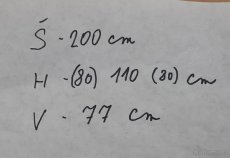 Š - 200 cm
H - (80) 110 (80) cm
V - 77 cm